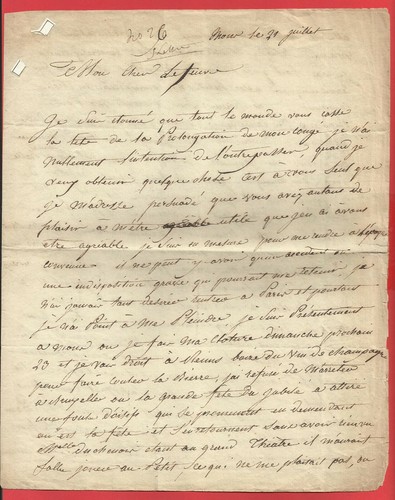 no 26
Mons le 20 juillet
Mon Cher Lefevre
Je suis étonné que tout le monde vous casse
la tête de la Prolongation de mon congé je n'ai
nullement l'intention de l'outrepasser, quand je
veux obtenir quelque chose c'est à vous seul que
je m'adresse persuadé que vous avez autant de
plaisir a m'être utile que j'en ai à vous
être agréable je suis en mesure pour me rendre a l'époque
convenue il ne peut y avoir qu'un accident ou
une indisposition grave qui pourrait me retenir, je
n'ai jamais tant desiré rentrer a Paris et pourtant
je n'ai Point à me Pleindre je suis Présentement
a mons ou je fais ma Cloture dimanche prochain
23 et je vais droit à boire du vin de champagne
pour faire couler la Bierre, j'ai refusé de m'arreter
à Bruxelles ou la grande fête du Jubilé a attiré
une foule d'oisifs qui se promenent en demandant
ou est la fête et s'en retournent sans avoir rien vu
Mlle duchesnois etant au grand Théâtre il m'aurait
fallu jouer au Petit ce qui ne me plaisait pas, on